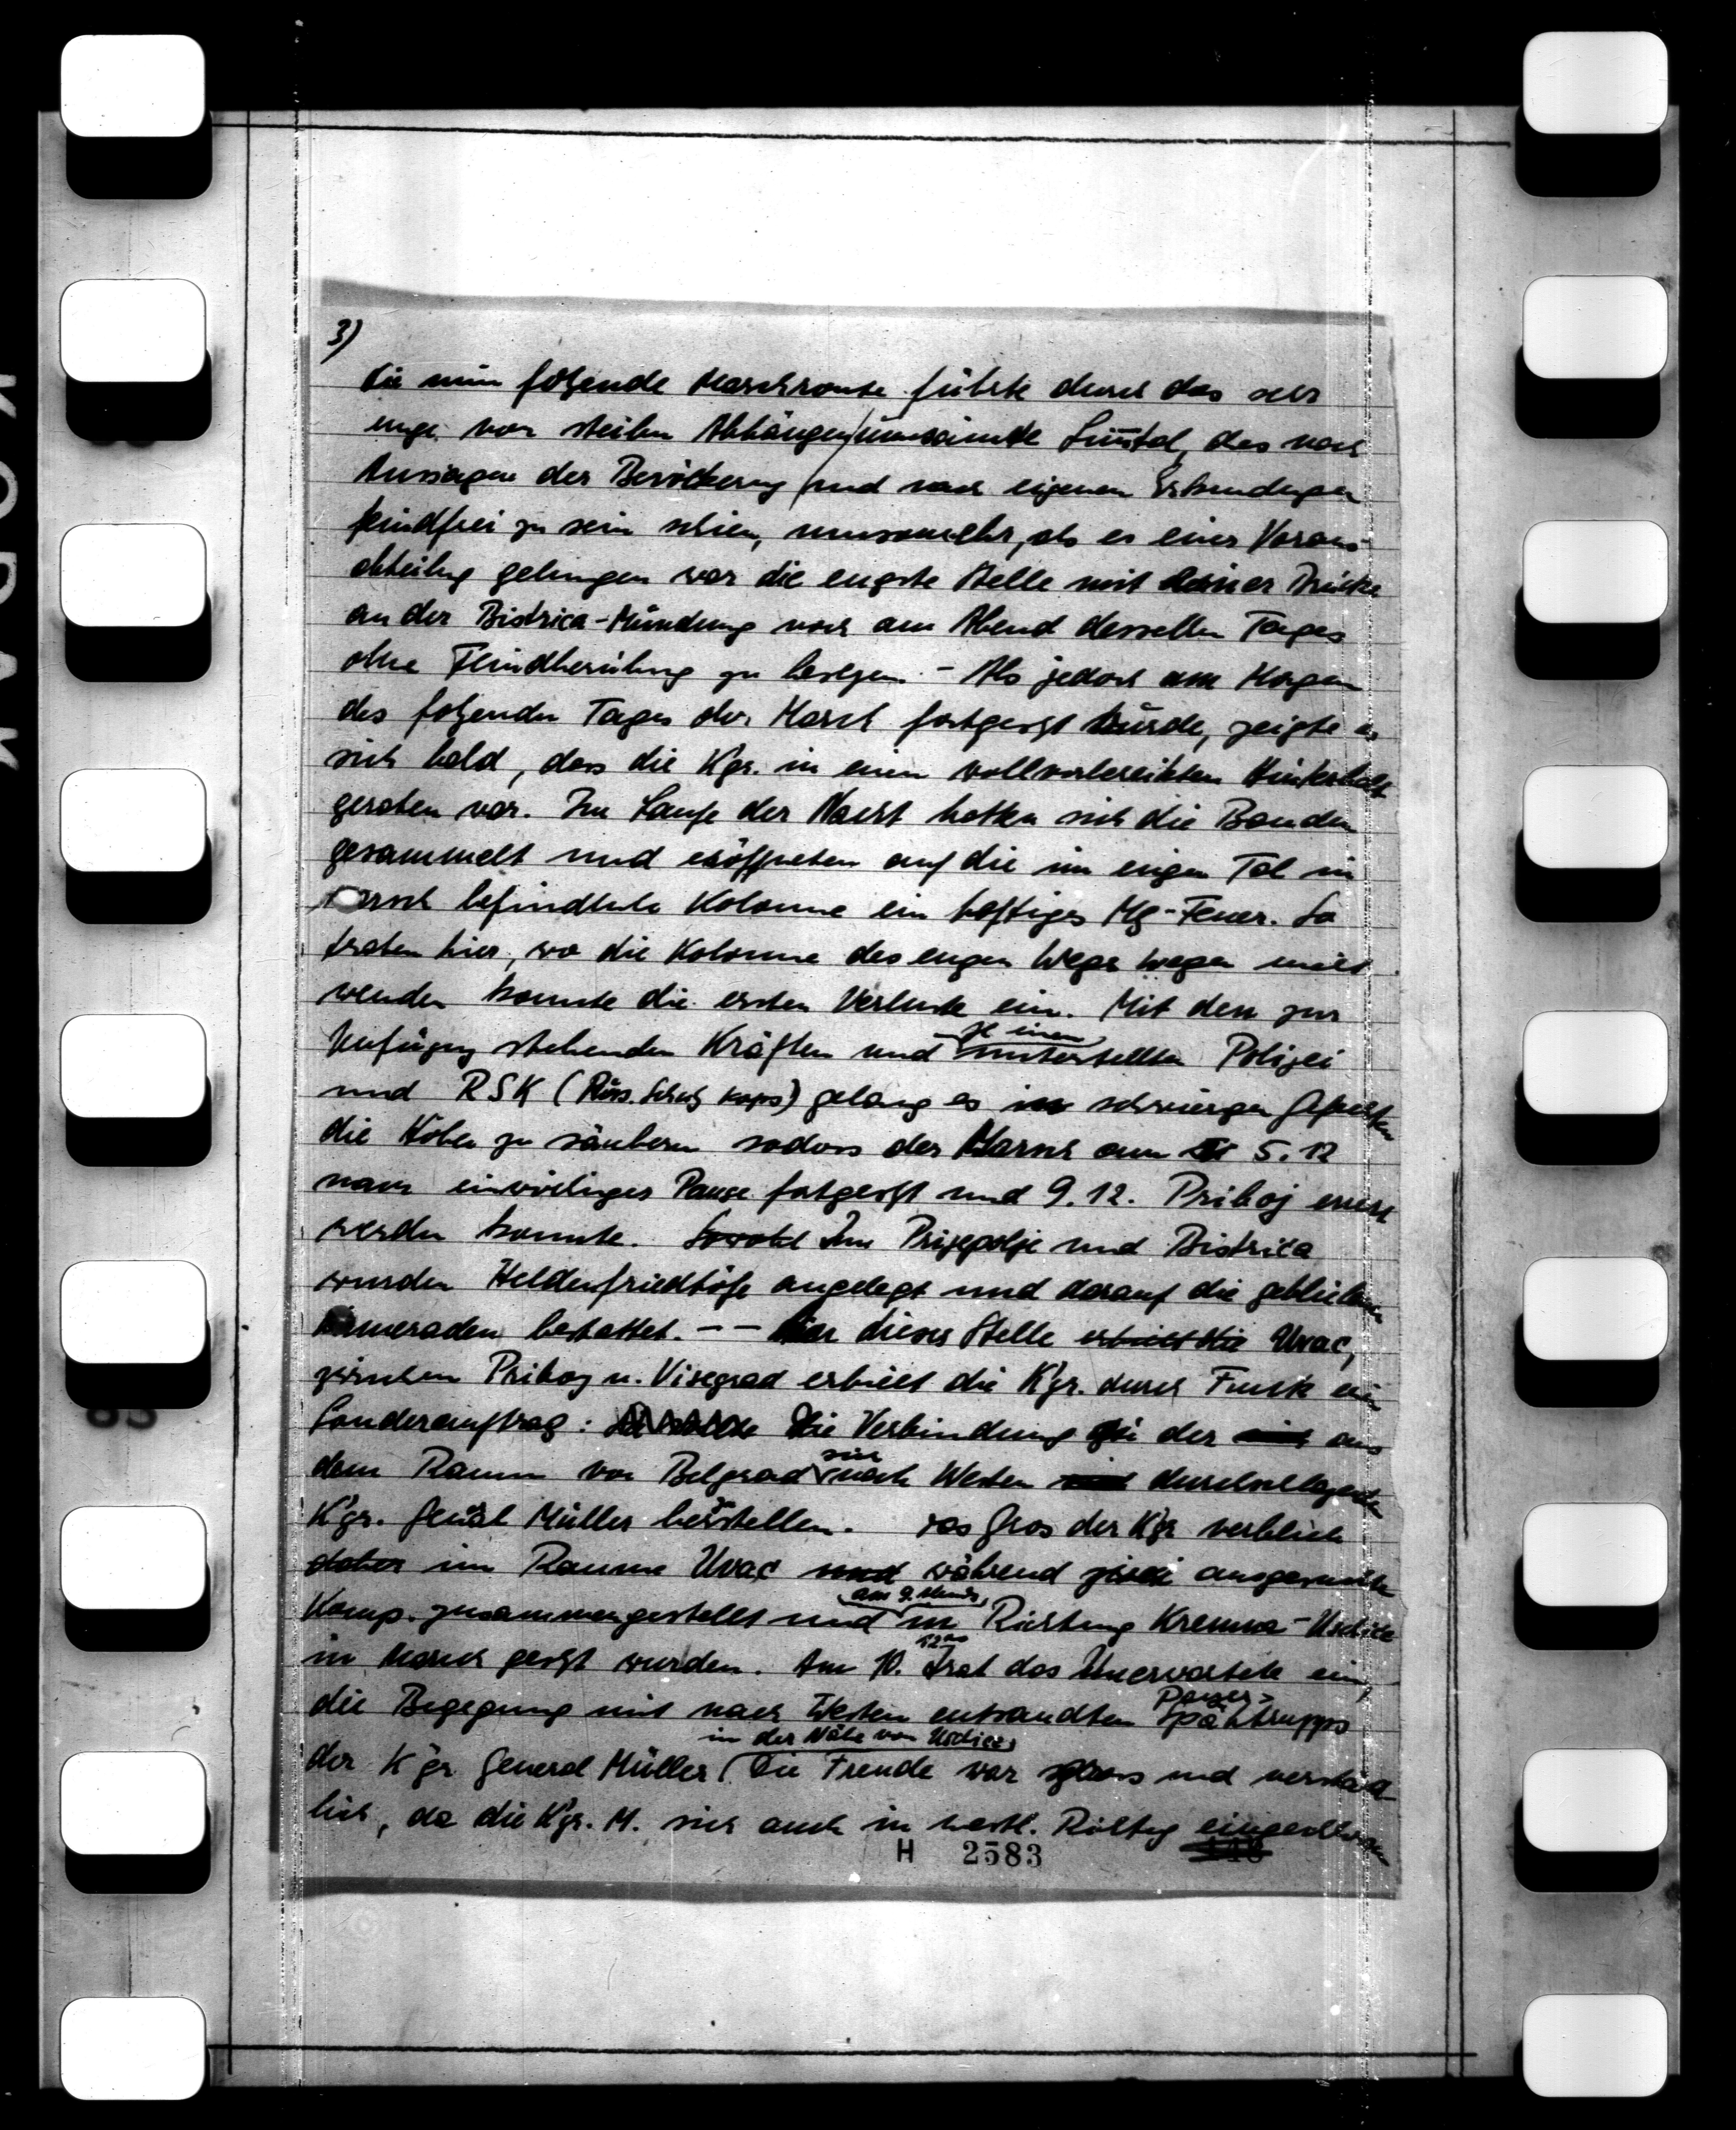 3)
Die nun folgende Marschroute führte durch das sehr
enge von steilen Abhängen umsäumte Limtal, das nach
Aussagen der Bevölkerung und nach eigenen Erkundungen
feindfrei zu sein schien, umsomehr, als es einer Voraus-
abteilung gelungen war die engste Stelle mit einer Brücke
an der Bistrica-Mündung noch am Abend desselben Tages
ohne Feindberührung zu besetzen. - Als jedoch am Morgen
des folgenden Tages der Marsch fortgesetzt wurde, zeigte es
sich bald, dass die Kgr. in einen vollvorbereiteten Hinterhalt
geraten war. Im Laufe der Nacht hatten sich die Banden
gesammelt und eröffneten auf die im engen Tal im
Marsch befindliche Kolonne ein heftiges Mg-Feuer. So
traten hier, wo die Kolonne des engen Weges wegen nicht
wenden konnte die ersten Verluste ein. Mit den zur
Verfügung stehenden Kräften und unterstellten Polizei
und RSK (Russ. Schutz Korps) gelang es in schwierigen Gefechten
die Höhen zu säubern sodass der Marsch am 5.12
nach einwöchiger Pause fortgesetzt und 9.12. Priboj erreicht
werden konnte. Sowohl In Prijepolje und Bistrica
wurden Heldenfriedhöfe angelegt und darauf die gebliebenen
Kameraden bestattet. -- An dieser Stelle erhielt die Uvac,
zwischen Priboj u. Visegrad erhielt die Kgr. durch Funk ein
Sonderauftrag: Die Verbindung zu der aus
dem Raum von Belgrad sich nach Westen durchschlagenden
Kgr. General Müller herstellen. Das Gros der Kgr verblieb
daher im Raume Uvac und während zwei ausgesuchte
Komp. zusammengestellt und am 9. abends, in Richtung Kremna - Uschice
in Marsch gesetzt wurden. Am 10. 12oo trat das Unerwartete ein,
die Begegnung mit nach Westen entsandten Panzer-Spähtrupps
der Kgr General Müller in der Nähe von Uschice. Die Freude war gross und verständ-
lich, da die Kgr. M. sich auch in westl. Richtung
H 2583